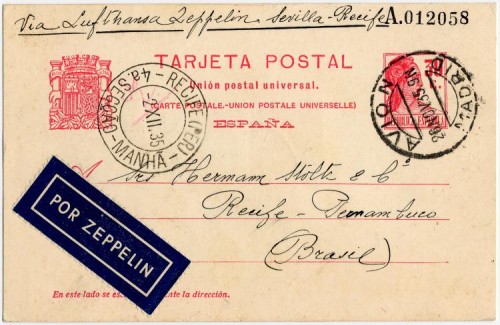 Via Lufthansa Zeppelin Sevilla-Recife
A.012058
TARJETA POSTAL
Unión postal universal.
(CARTE POSTALE-UNION POSTALE UNIVERSELLE)
ESPAÑA
RECIFE (PER)
4a SECÇÃO-MANHÃ
-2XII.35
MADRID
AVION
A
Srs Hermann Stolte & Co
Recife - Pernambuco
(Brasil)
POR ZEPPELIN
En este lado se es
ente la dirección.